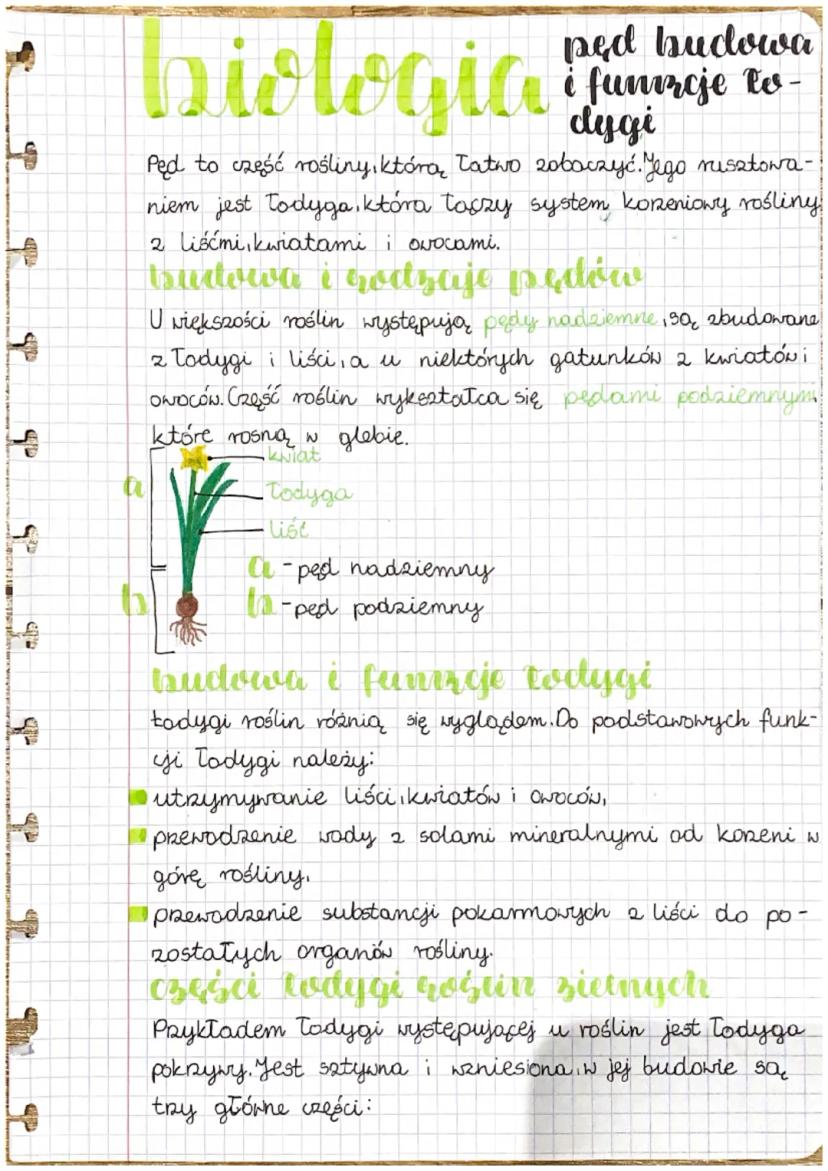 biologia
pęd budowa
i funkcje ło-
dygi
Pęd to część rośliny, którą łatwo zobaczyć. Jego rusztowa-
niem jest łodyga, która łączy system korzeniowy rośliny
z liśćmi, kwiatami i owocami.
budowa i rodzaje pędów
U większości roślin występują pędy nadziemne, są zbudowane
z łodygi i liści, a u niektórych gatunków z kwiatów i
owoców. Część roślin wykształca się pędami podziemnymi,
które rosną w glebie.
kwiat
a
łodyga
liść
a - pęd nadziemny
b
b - pęd podziemny
budowa i funkcje łodygi
łodygi roślin różnią się wyglądem. Do podstawowych funk-
cji łodygi należy:
utrzymywanie liści, kwiatów i owoców,
przewodzenie wody z solami mineralnymi od korzeni w
górę rośliny,
przewodzenie substancji pokarmowych z liści do po-
zostałych organów rośliny.
części łodygi roślin zielnych
Przykładem łodygi występującej u roślin jest łodyga
pokrzywy. Jest sztywna i wzniesiona, w jej budowie są
trzy główne części: